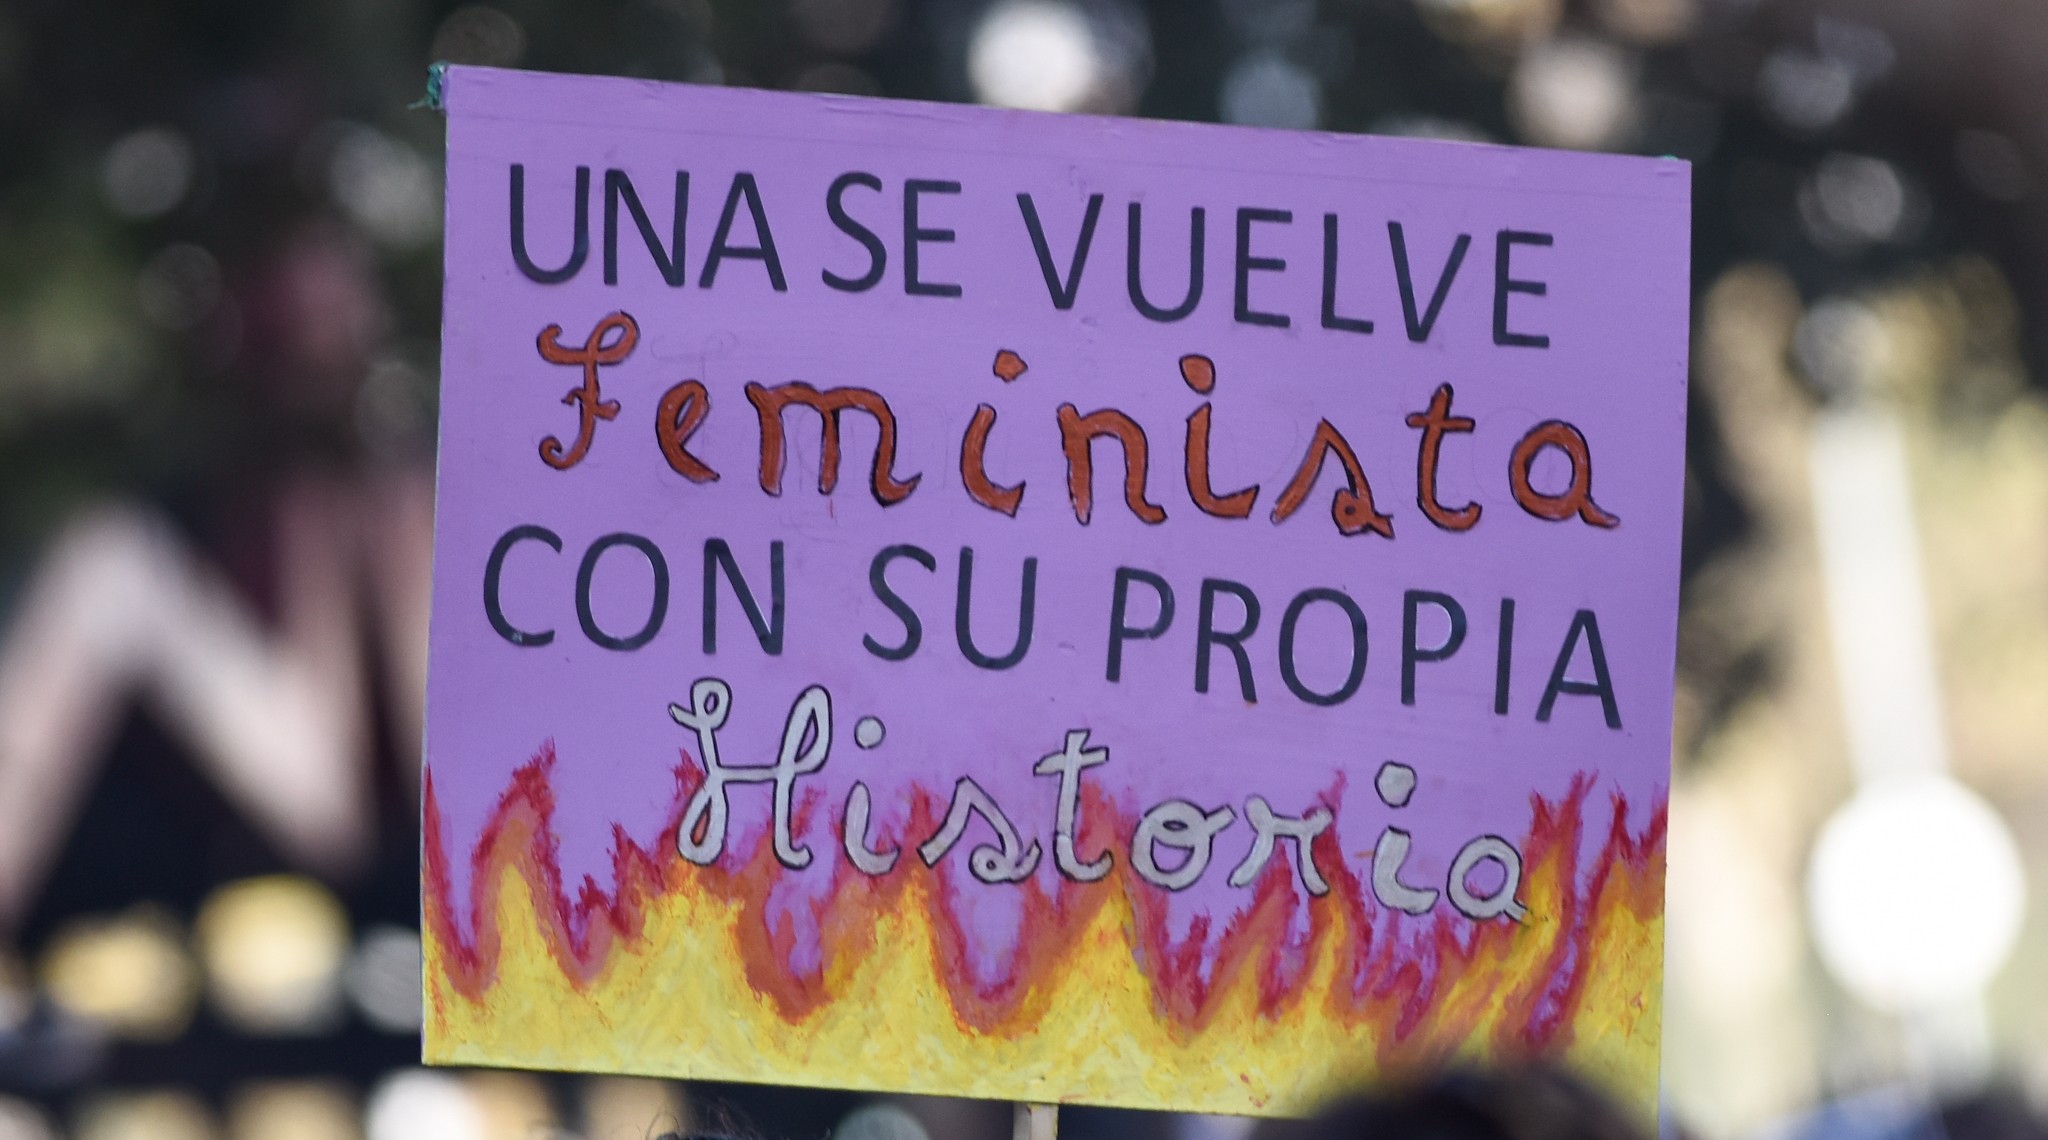 UNA SE VUELVE
Feminista
CON SU PROPIA
Historia